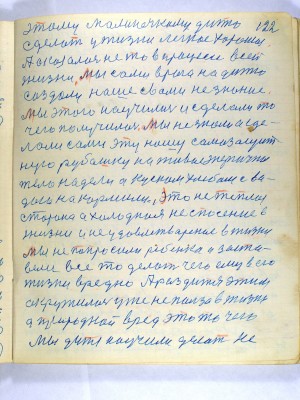 122
этому маленькому дитю
сделать у жизни легкое хорошее
А оказался не то в процессе всей
жизни, Мы сами врага на дитю
создали наше с вами незнание.
Мы этого научились и сделали то
чего получилось. Мы не знали а сде-
лали сами эту нашу самозащит-
ную рубашку на живое энергично
тело надели а куском хлебом с во-
дою накормили, Это не теплая
сторона а холодная не спасение в
жизни и неудовлетворение в жизни
Мы не попросили ребенка а заста-
вили все то делать чего ему в его
жизни вредно А раз дитя этим
окружились уже не польза в жизни
а природной вред это то чего
Мы дитя научили делать не